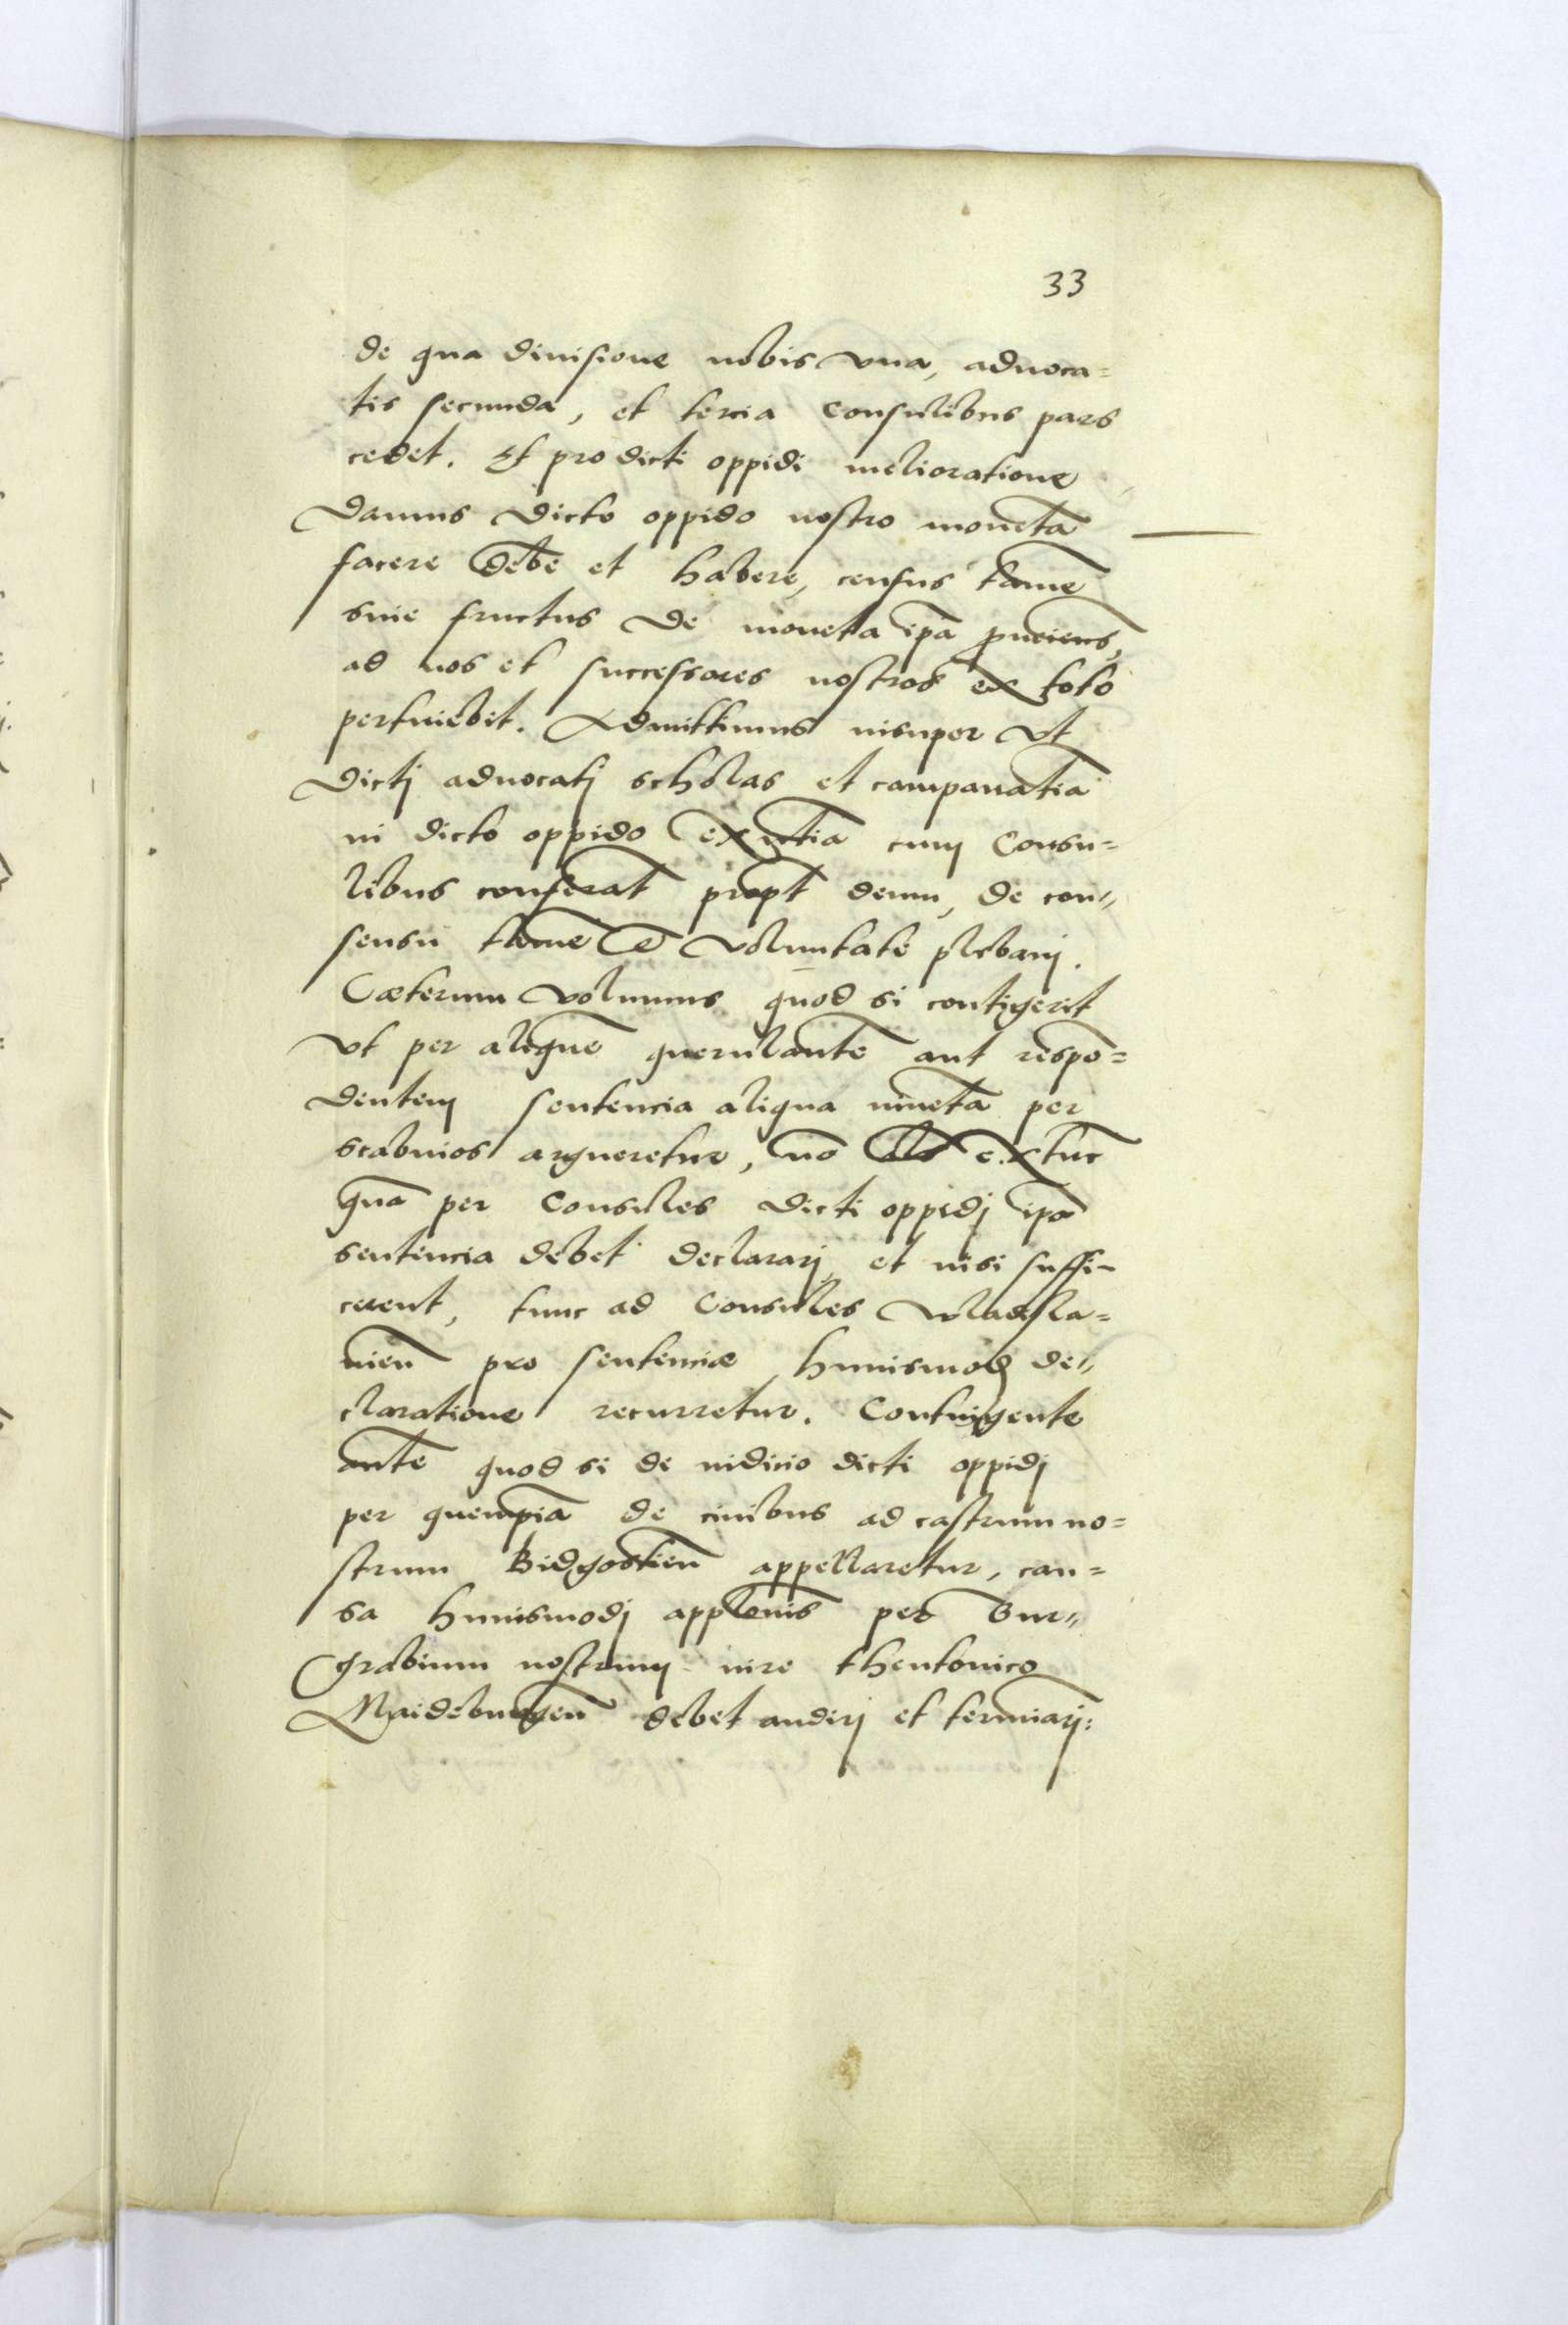 33
de qua divisione nobis vna, advoca=
tis secunda, et tercia Consulibus pars
cedet. Et pro dicti oppidi melioratione
Damus dicto oppido nostro monetā
facere debē et habere, census tamē
siue fructus de moneta ipā proueniens,
ad nos et successores nostros ex toto
pertinebit. Admittimus insuper Vt
dictj advocatj scholas et campanatiā
in dicto oppido exñtia cum Consu=
libus conferāt propt deum, de con=
sensu tamē et voluntate plebanj.
Cæterum volumus quod si contigerit
Vt per aliquē querulantē aut respō=
dentem sentencia aliqua inventa per
scabinos argueretur, nō extūc
quā per Consules dicti oppidj ipā
sentencia debet declararj, et nisi suffi=
cerent, tunc ad Consules Wladisla=
uieñ pro sentenciæ huiusmodj de=
claratione recurretur. Contingente
autē quod si de iudicio dicti oppidj
per quempiā de ciuibus ad castrum no=
strum Bidgostieñ appellaretur, cau=
sa huiusmodj applōnis per Bur=
grabium nostrum iure theutonico
Maideburgeñ debet audirj et terminarj: